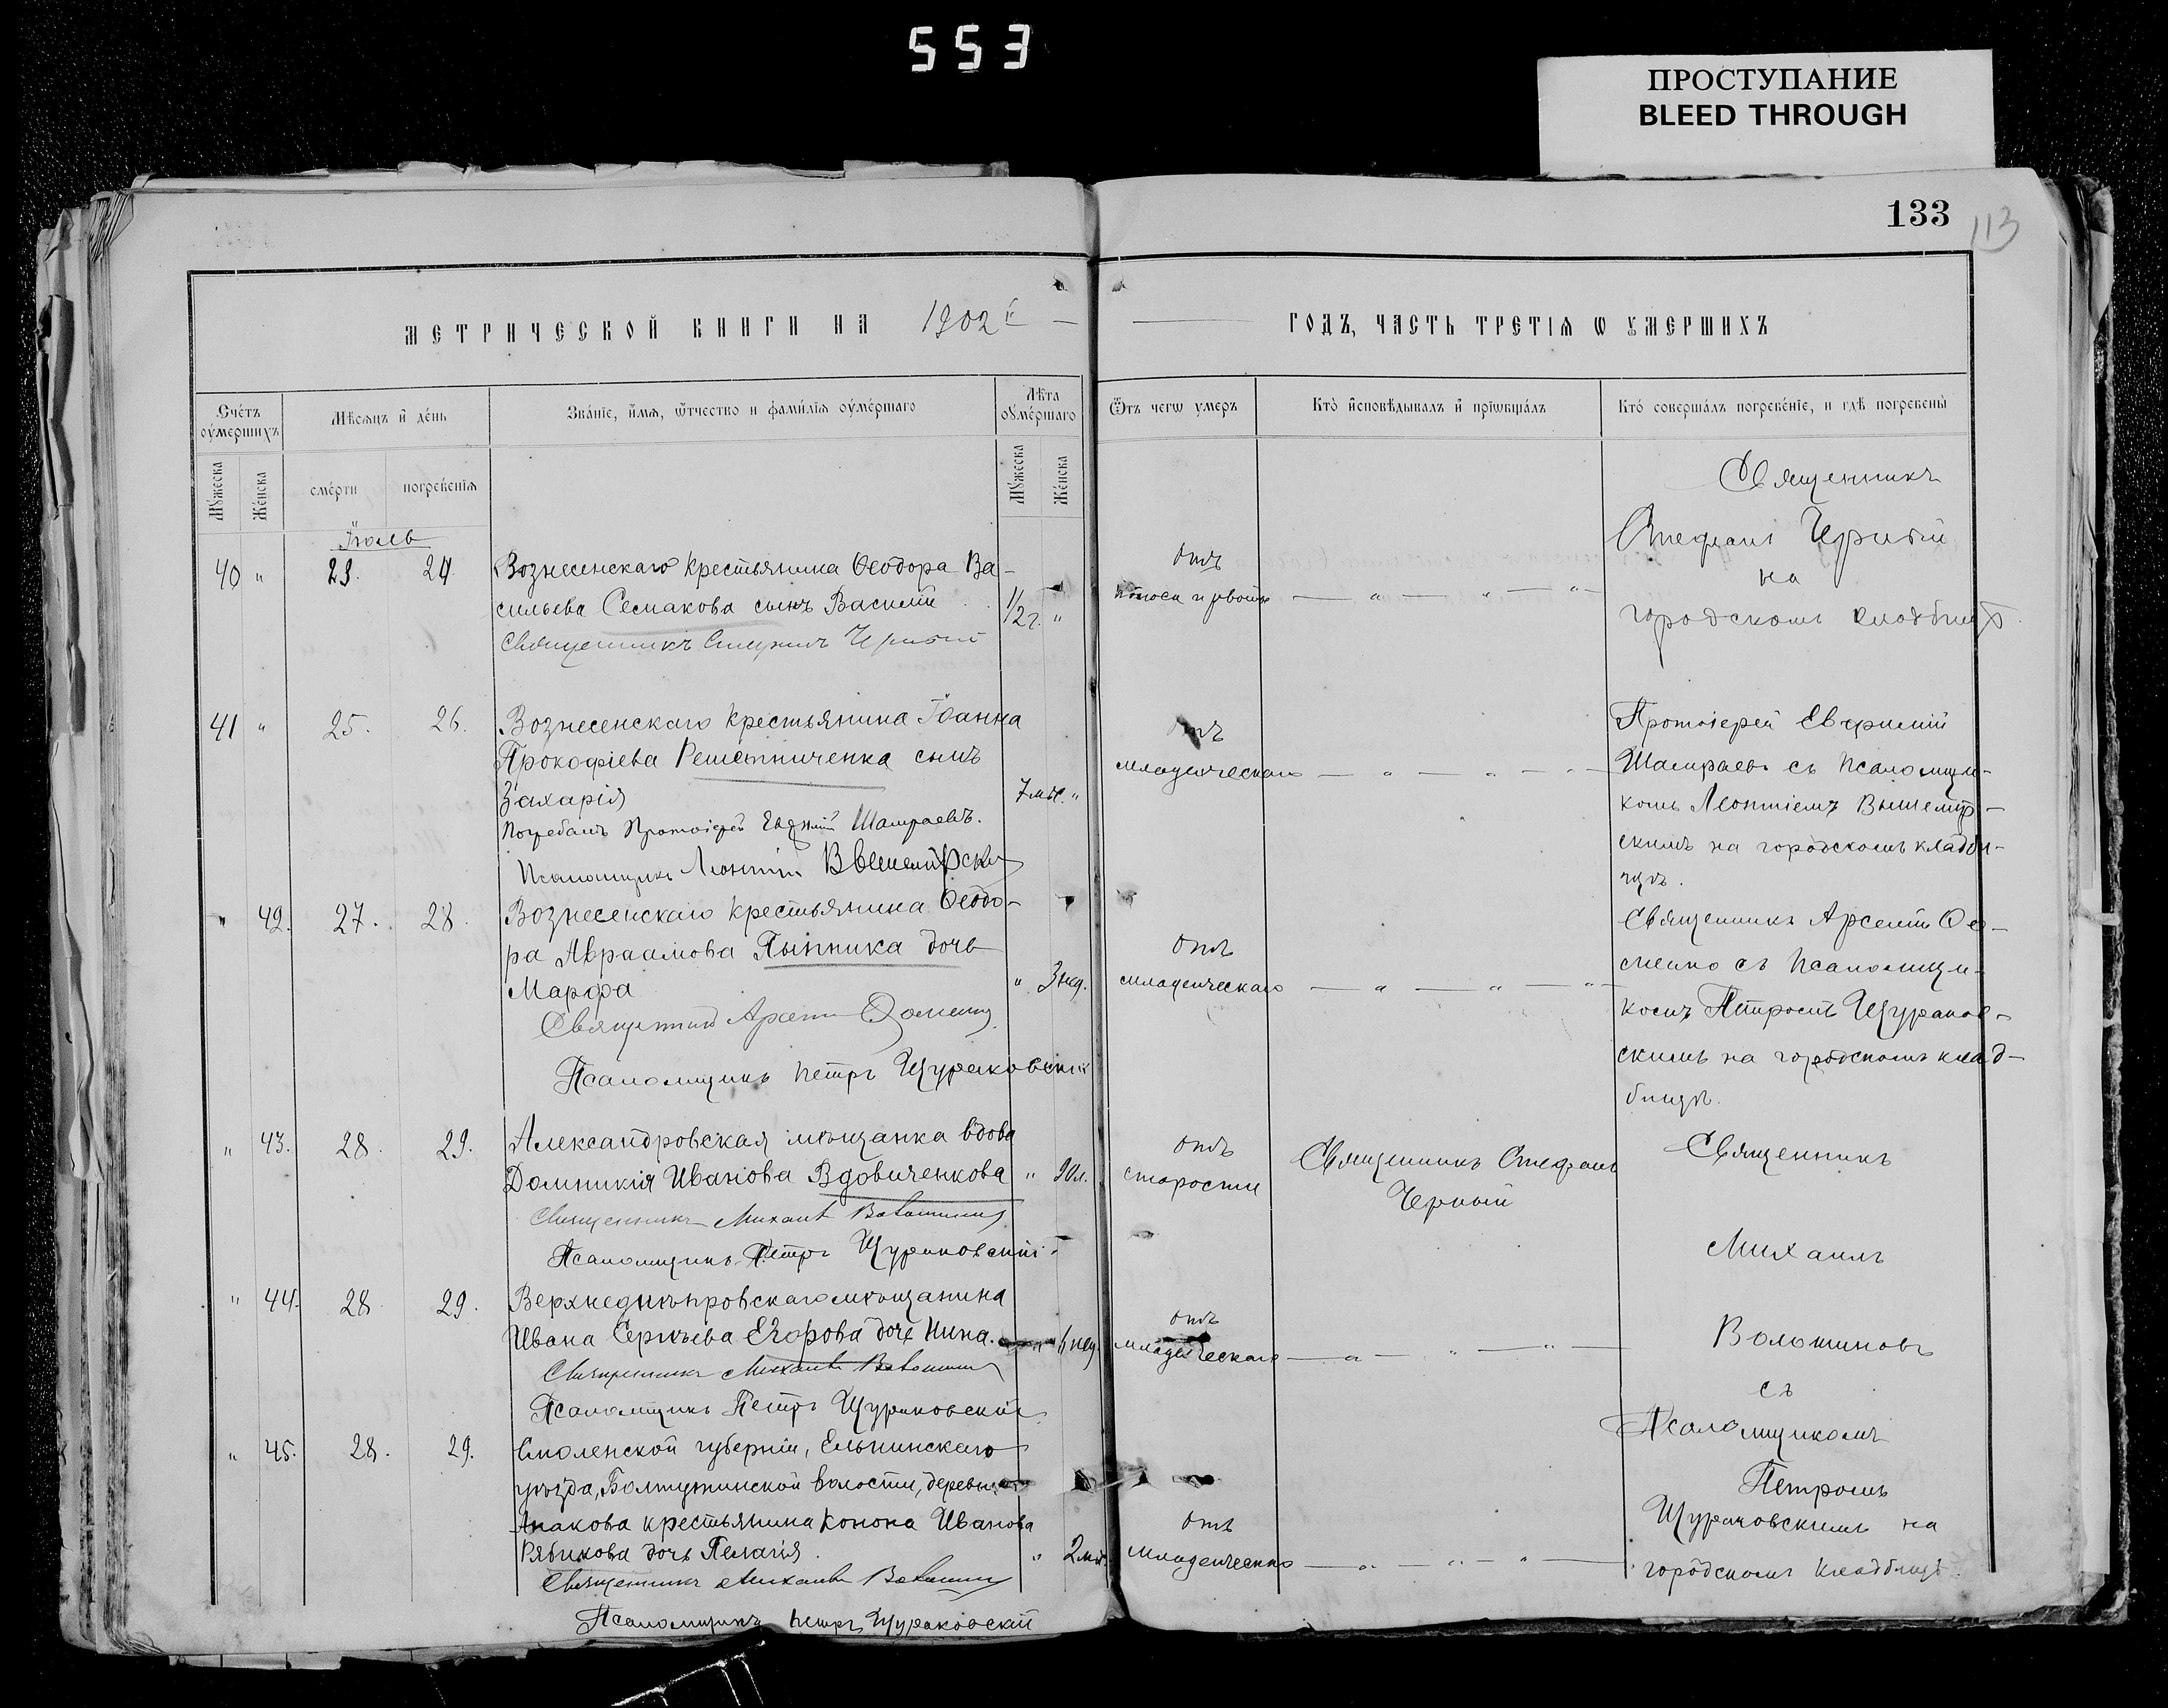 553
ПРОСТУПАНИЕ
BLEED THROUGH
133
113
МЕТРИЧЕСКОЙ КНИГИ НА 1902 й
ГОДЪ, ЧАСТЬ ТРЕТІѦ Ѡ ОУМЕРШИХЪ
Счетъ оумершихъ
Мѣсяцъ и день
Званіе, имя, отчество и фамилія оумершаго
Лѣта оумершаго
Отъ чегѡ умеръ
Кто исповѣдывалъ и пріѡбщалъ
Кто совершалъ погребеніе, и гдѣ погребены
Мужеска
Женска
смерти
погребенія
Мужеска
Женска
Іюль
40 " 23. 24. Вознесенскаго крестьянина Ѳеодора Ва-
сильева Семакова сынъ Василій 1/2 г. "
Священникъ Стефанъ Черный
отъ
поноса и рвоты
Священникъ
Стефанъ Черный
на
городскомъ кладбищѣ.
41 " 25. 26. Вознесенскаго крестьянина Іоанна
Прокофіева Решетниченка сынъ
Захарія 7 мѣс. "
Погребалъ Протоіерей Евфимій Шамраевъ.
Псаломщикъ Леонтій Вышемірскій
отъ
младенческаго
Протоіерей Евфимій
Шамраевъ съ псаломщи-
комъ Леонтіемъ Вышемір-
скимъ на городскомъ кладби-
щѣ.
" 42. 27. 28. Вознесенскаго крестьянина Ѳеодо-
ра Авраамова Пынтика дочь
Марфа " 3 нед.
Священникъ Арсеній
Псаломщикъ Петръ Щураковскій
отъ
младенческаго
Священникъ Арсеній
съ псаломщи-
комъ Петромъ Щураков-
скимъ на городскомъ клад-
бищѣ.
" 43. 28. 29. Александровская мѣщанка вдова
Домникія Иванова Вдовиченкова " 90 л.
Священникъ Михаилъ Волошиновъ
Псаломщикъ Петръ Щураковскій
отъ
старости
Священникъ Стефанъ
Черный
Священникъ
Михаилъ
Волошиновъ
съ
Псаломщикомъ
Петромъ
Щураковскимъ на
городскомъ кладбищѣ.
" 44. 28. 29. Верхнеднѣпровскаго мѣщанина
Ивана Сергѣева Егорова дочь Нина. " 6 нед.
Священникъ Михаилъ Волошиновъ
Псаломщикъ Петръ Щураковскій
отъ
младенческаго
" 45. 28. 29. Смоленской губерніи, Ельнинскаго
уѣзда, Болтутинской волости, деревни
Анакова крестьянина Конона Иванова
Рябикова дочь Пелагія. " 2 мѣс.
Священникъ Михаилъ Волошиновъ
Псаломщикъ Петръ Щураковскій
отъ
младенческаго